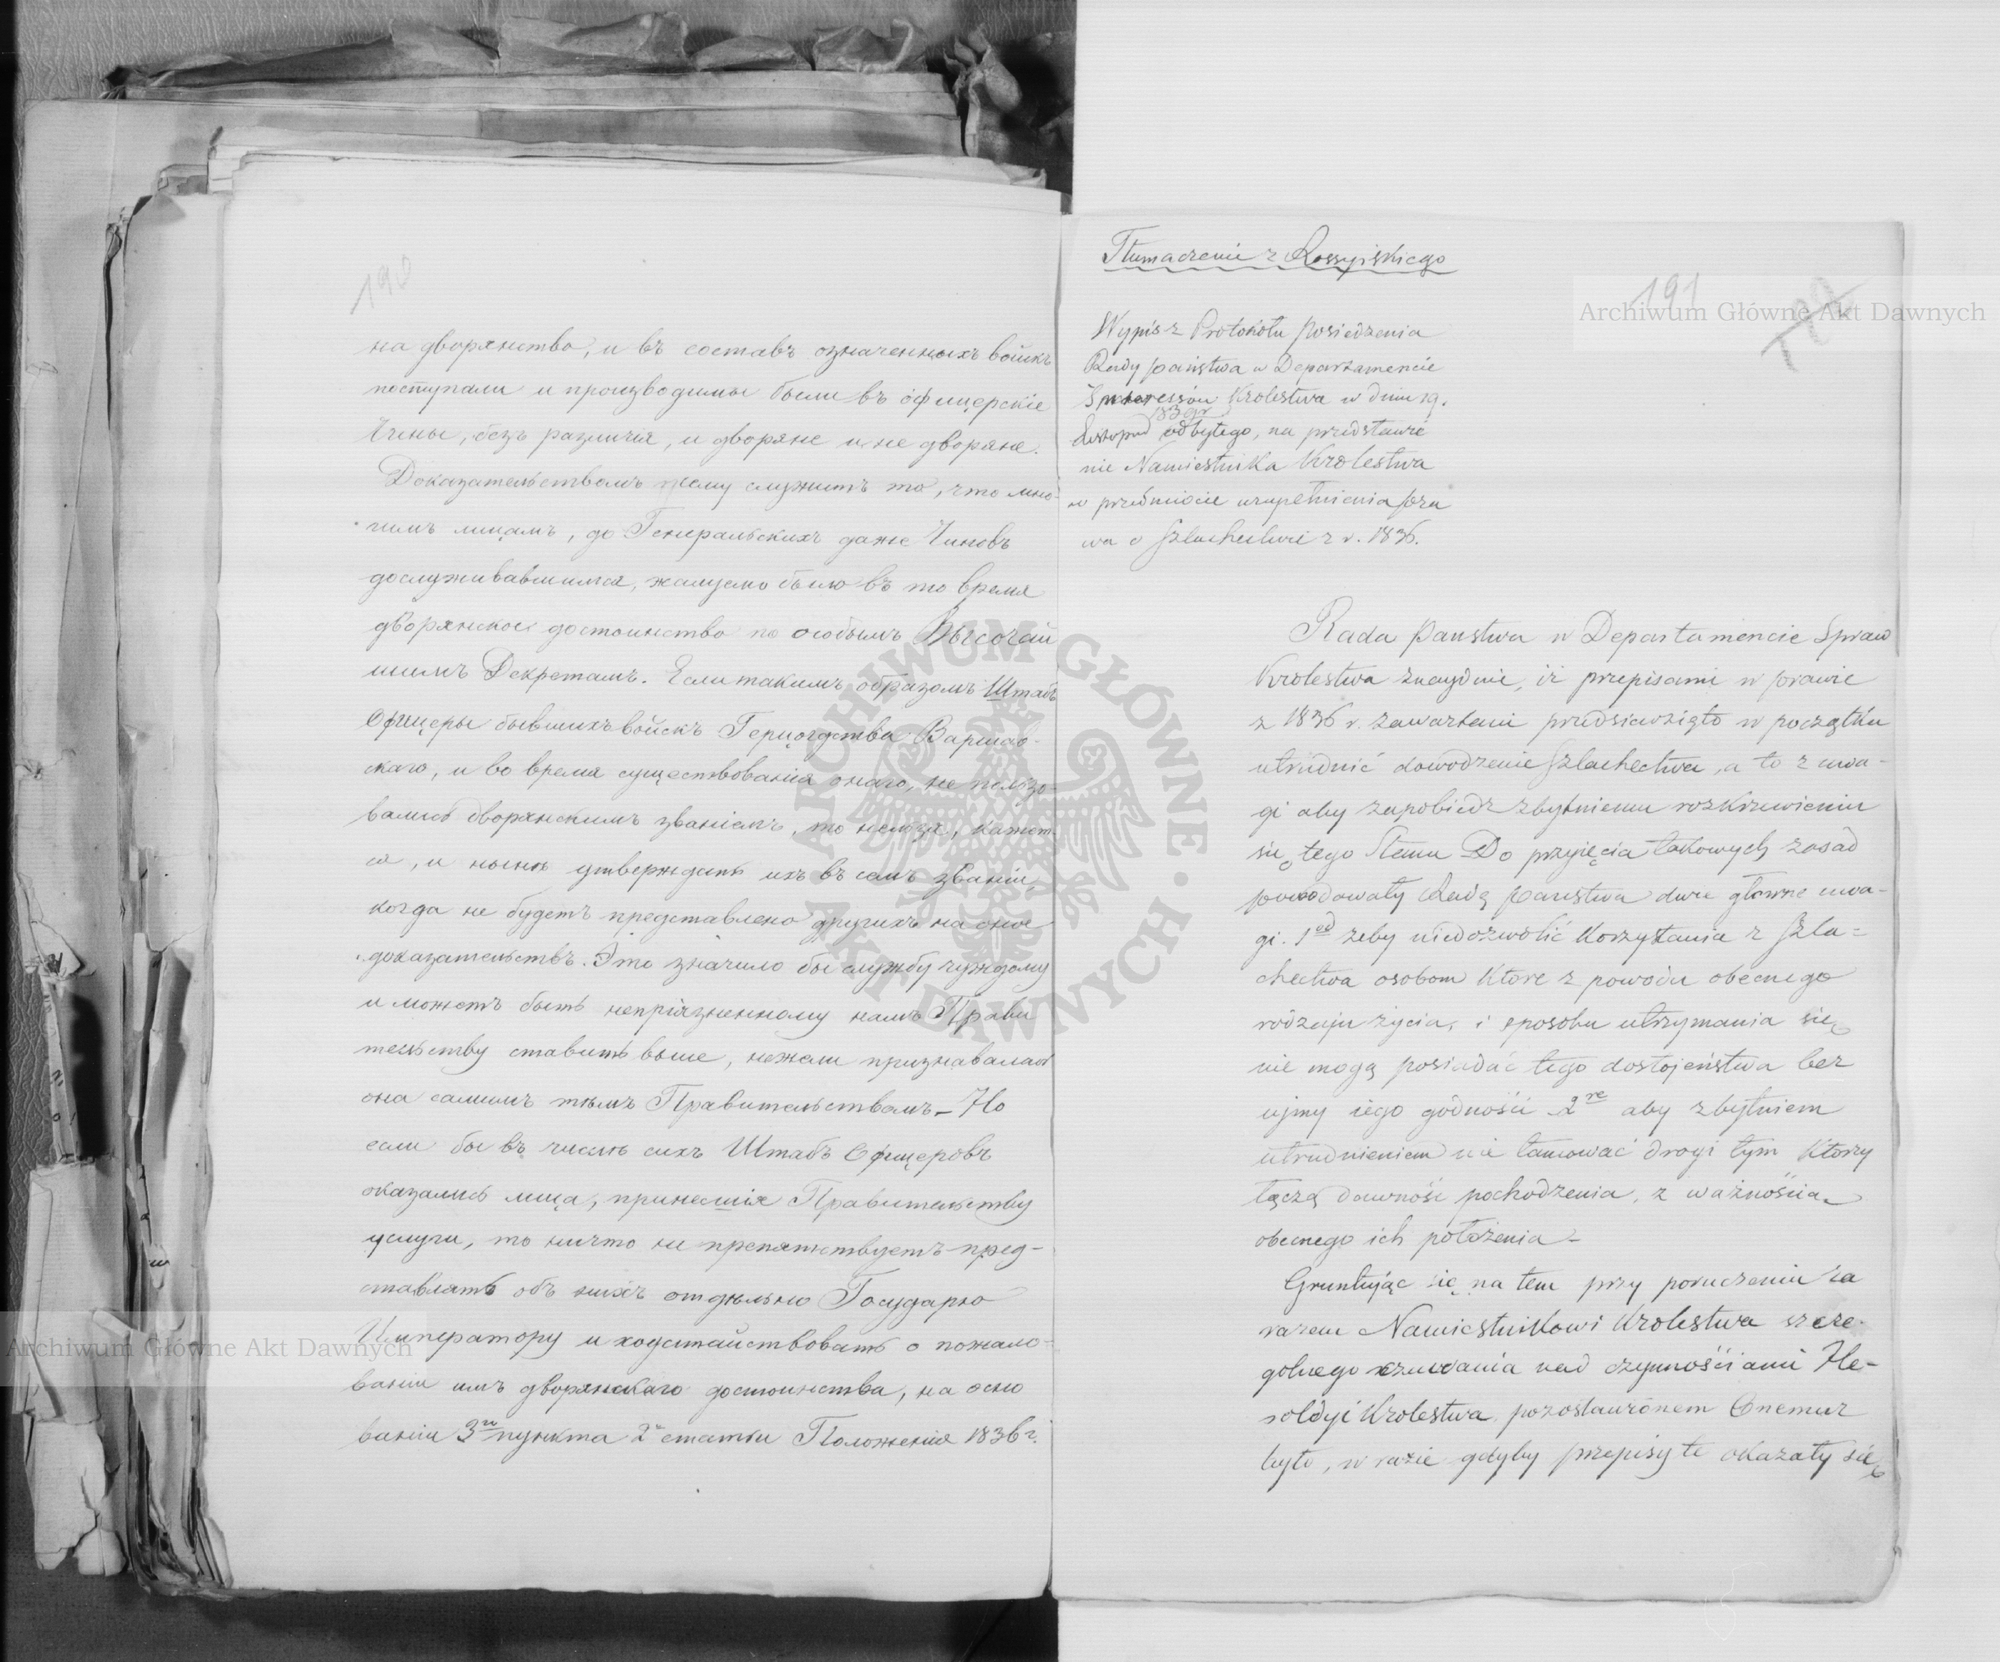 190
на дворянство, и въ составъ означенныхъ войскъ
поступали и производимы были въ офицерскіе
Чины, безъ различія, и дворяне и не дворяне.
Доказательствомъ сему служитъ то, что мно-
гимъ лицамъ, до Генеральскихъ даже Чиновъ
дослужившимся, жалуемо было въ то время
дворянское достоинство по особымъ Высочай
шимъ Декретамъ. Если такимъ образомъ Штабъ
Офицеры бывшихъ войскъ Герцогства Варшав-
скаго, и во время существованія онаго, не пользо-
вались дворянскимъ званіемъ, то нельзя, кажет-
ся, и нынѣ утверждать ихъ въ семъ званіи,
когда не будетъ представлено другихъ на оное
доказательствъ. Это значило бы службу чуждому
и можетъ быть непріязненному намъ Прави
тельству ставить выше, нежели признавалась
она самимъ тѣмъ Правительствомъ – Но
если бы въ числѣ сихъ Штабъ Офицеровъ
оказались лица, принесшія Правительству
услуги, то ничто не препятствуетъ пред-
ставлять объ нихъ отдѣльно Государю
Императору и ходатайствовать о пожало-
ваніи имъ дворянскаго достоинства, на осно
ваніи 3го пункта 2й статьи Положенія 1836 г.
Tłumaczenie z Rossyiskiego
191
Wypis z Protokółu posiedzenia
Rady państwa w Departamencie
Interessów Krolestwa w dniu 19.
1839 r
Listopad odbytego, na przedstawie
nie Namiestnika Krolestwa
w przedmiocie uzupełnienia pra
wa o Szlachectwie z r. 1836.
Rada Panstwa w Departamencie Spraw
Krolestwa znayduie, iż przepisami w prawie
z 1836 r. zawartemi przedsiewzięto w początku
utrudnić dowodzenie Szlachectwa, a to z uwa-
gi aby zapobiedz zbytniemu rozkrzewieniu
się tego Stanu Do przyięcia takowych zasad
powodowały Radę Panstwa dwie główne uwa-
gi. 1ed żeby niedozwolić korzystania z Szla=
chectwa osobom które z powodu obecnego
rodzaju życia, i sposobu utrzymania się
nie mogą posiadać tego dostojeństwa bez
ujmy iego godności 2re aby zbytniem
utrudnieniem nie tamować drogi tym którzy
łączą dawność pochodzenia, z ważnością
obecnego ich położenia –
Gruntując się na tem przy poruczeniu za
razem Namiestnikowi Krolestwa szcze-
gólnego czuwania nad czynnościami He-
roldyi Krolestwa pozostawionem Onemuz
było, w razie gdyby przepisy te okazały się
Archiwum Główne Akt Dawnych
Archiwum Główne Akt Dawnych
ARCHIWUM GŁÓWNE AKT DAWNYCH